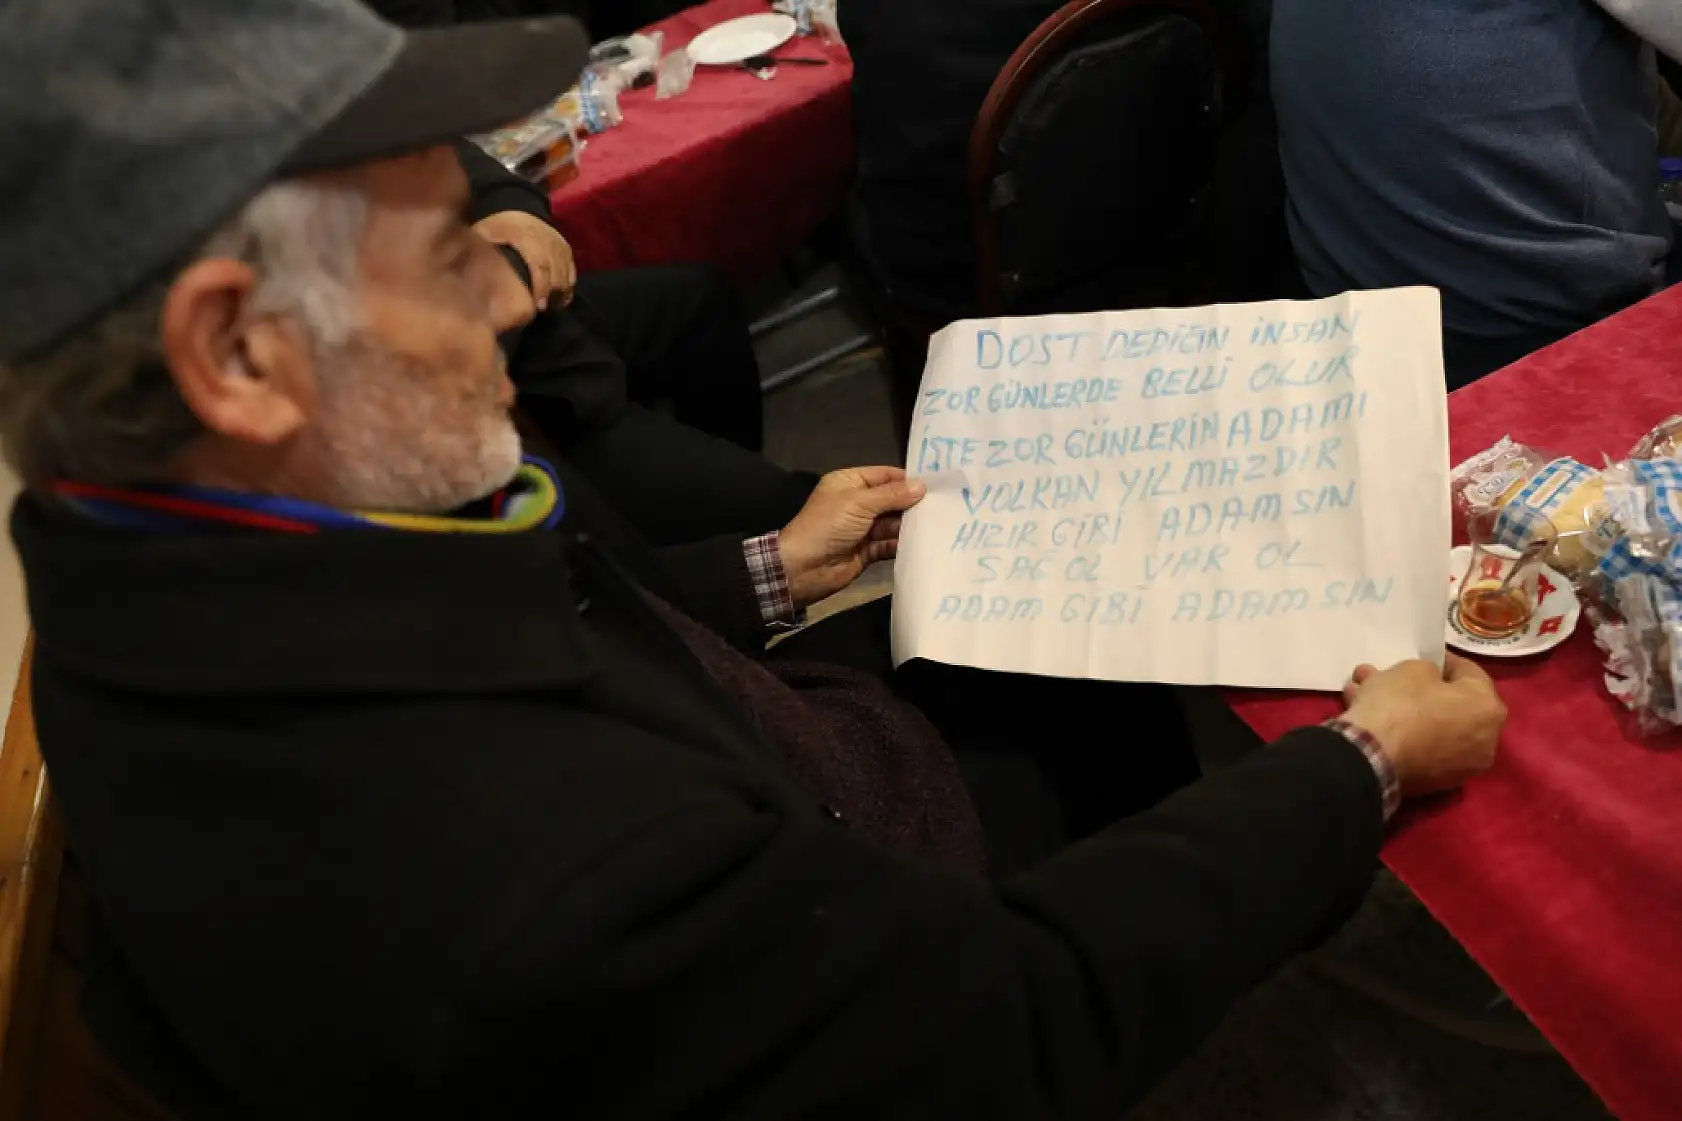 DOST DEDİĞİN İNSAN
ZOR GÜNLERDE BELLİ OLUR
İŞTE ZOR GÜNLERİN ADAMI
VOLKAN YILMAZDIR
HIZIR GİBİ ADAMSIN
SAĞOL VAR OL
ADAM GİBİ ADAMSIN